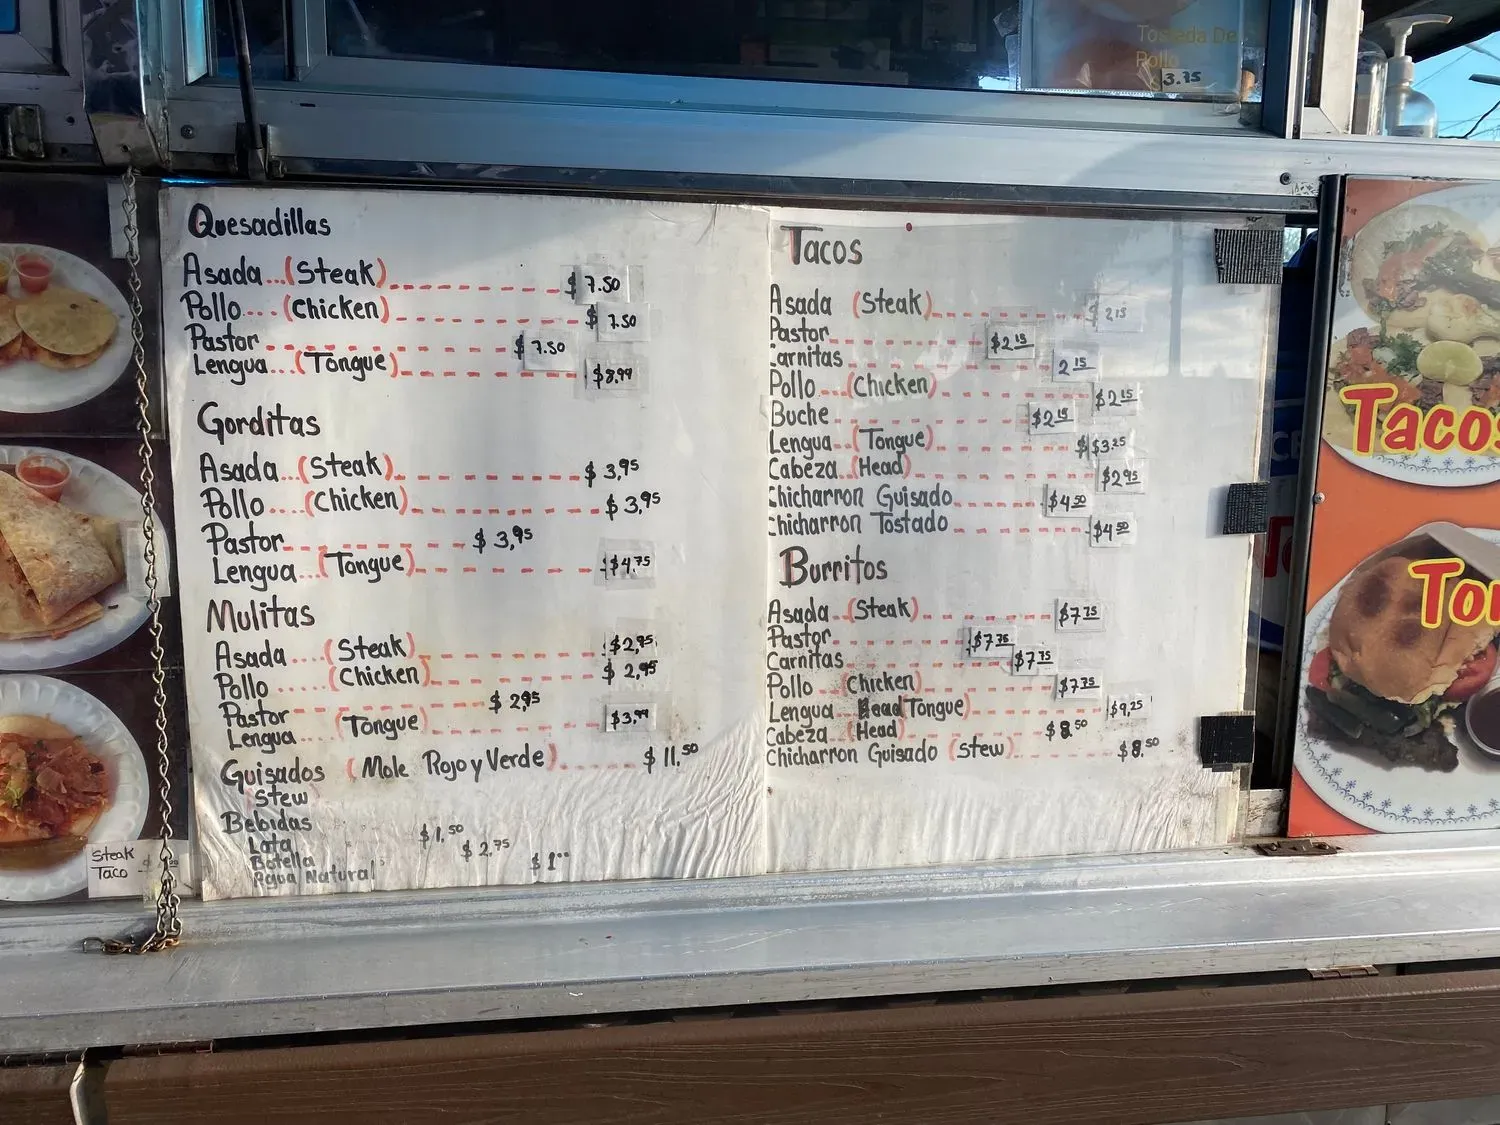 Tostada De
Pollo
$3.75
Quesadillas
Asada...(Steak) $7.50
Pollo....(Chicken) $7.50
Pastor $7.50
Lengua...(Tongue) $8.99
Gorditas
Asada...(Steak) $3.95
Pollo...(Chicken) $3.95
Pastor $3.95
Lengua...(Tongue) $4.75
Mulitas
Asada....(Steak) $2.95
Pollo.....(Chicken) $2.95
Pastor $2.95
Lengua...(Tongue) $3.99
Guisados (Mole Rojo y Verde) $11.50
Stew
Bebidas
Lata $1.50
Botella $2.75
Agua Natural $1°°
Tacos
Asada (Steak) 2.15
Pastor $2.15
Carnitas 2.15
Pollo...(Chicken) $2.15
Buche $2.15
Lengua..(Tongue) $3.25
Cabeza..(Head) $2.95
Chicharron Guisado $4.50
Chicharron Tostado $4.50
Burritos
Asada..(Steak) $7.75
Pastor $7.75
Carnitas $7.75
Pollo...(Chicken) $7.75
Lengua Tongue) $9.25
Cabeza..(Head) $8.50
Chicharron Guisado (Stew) $8.50
Steak
Taco
Tacos
Tor